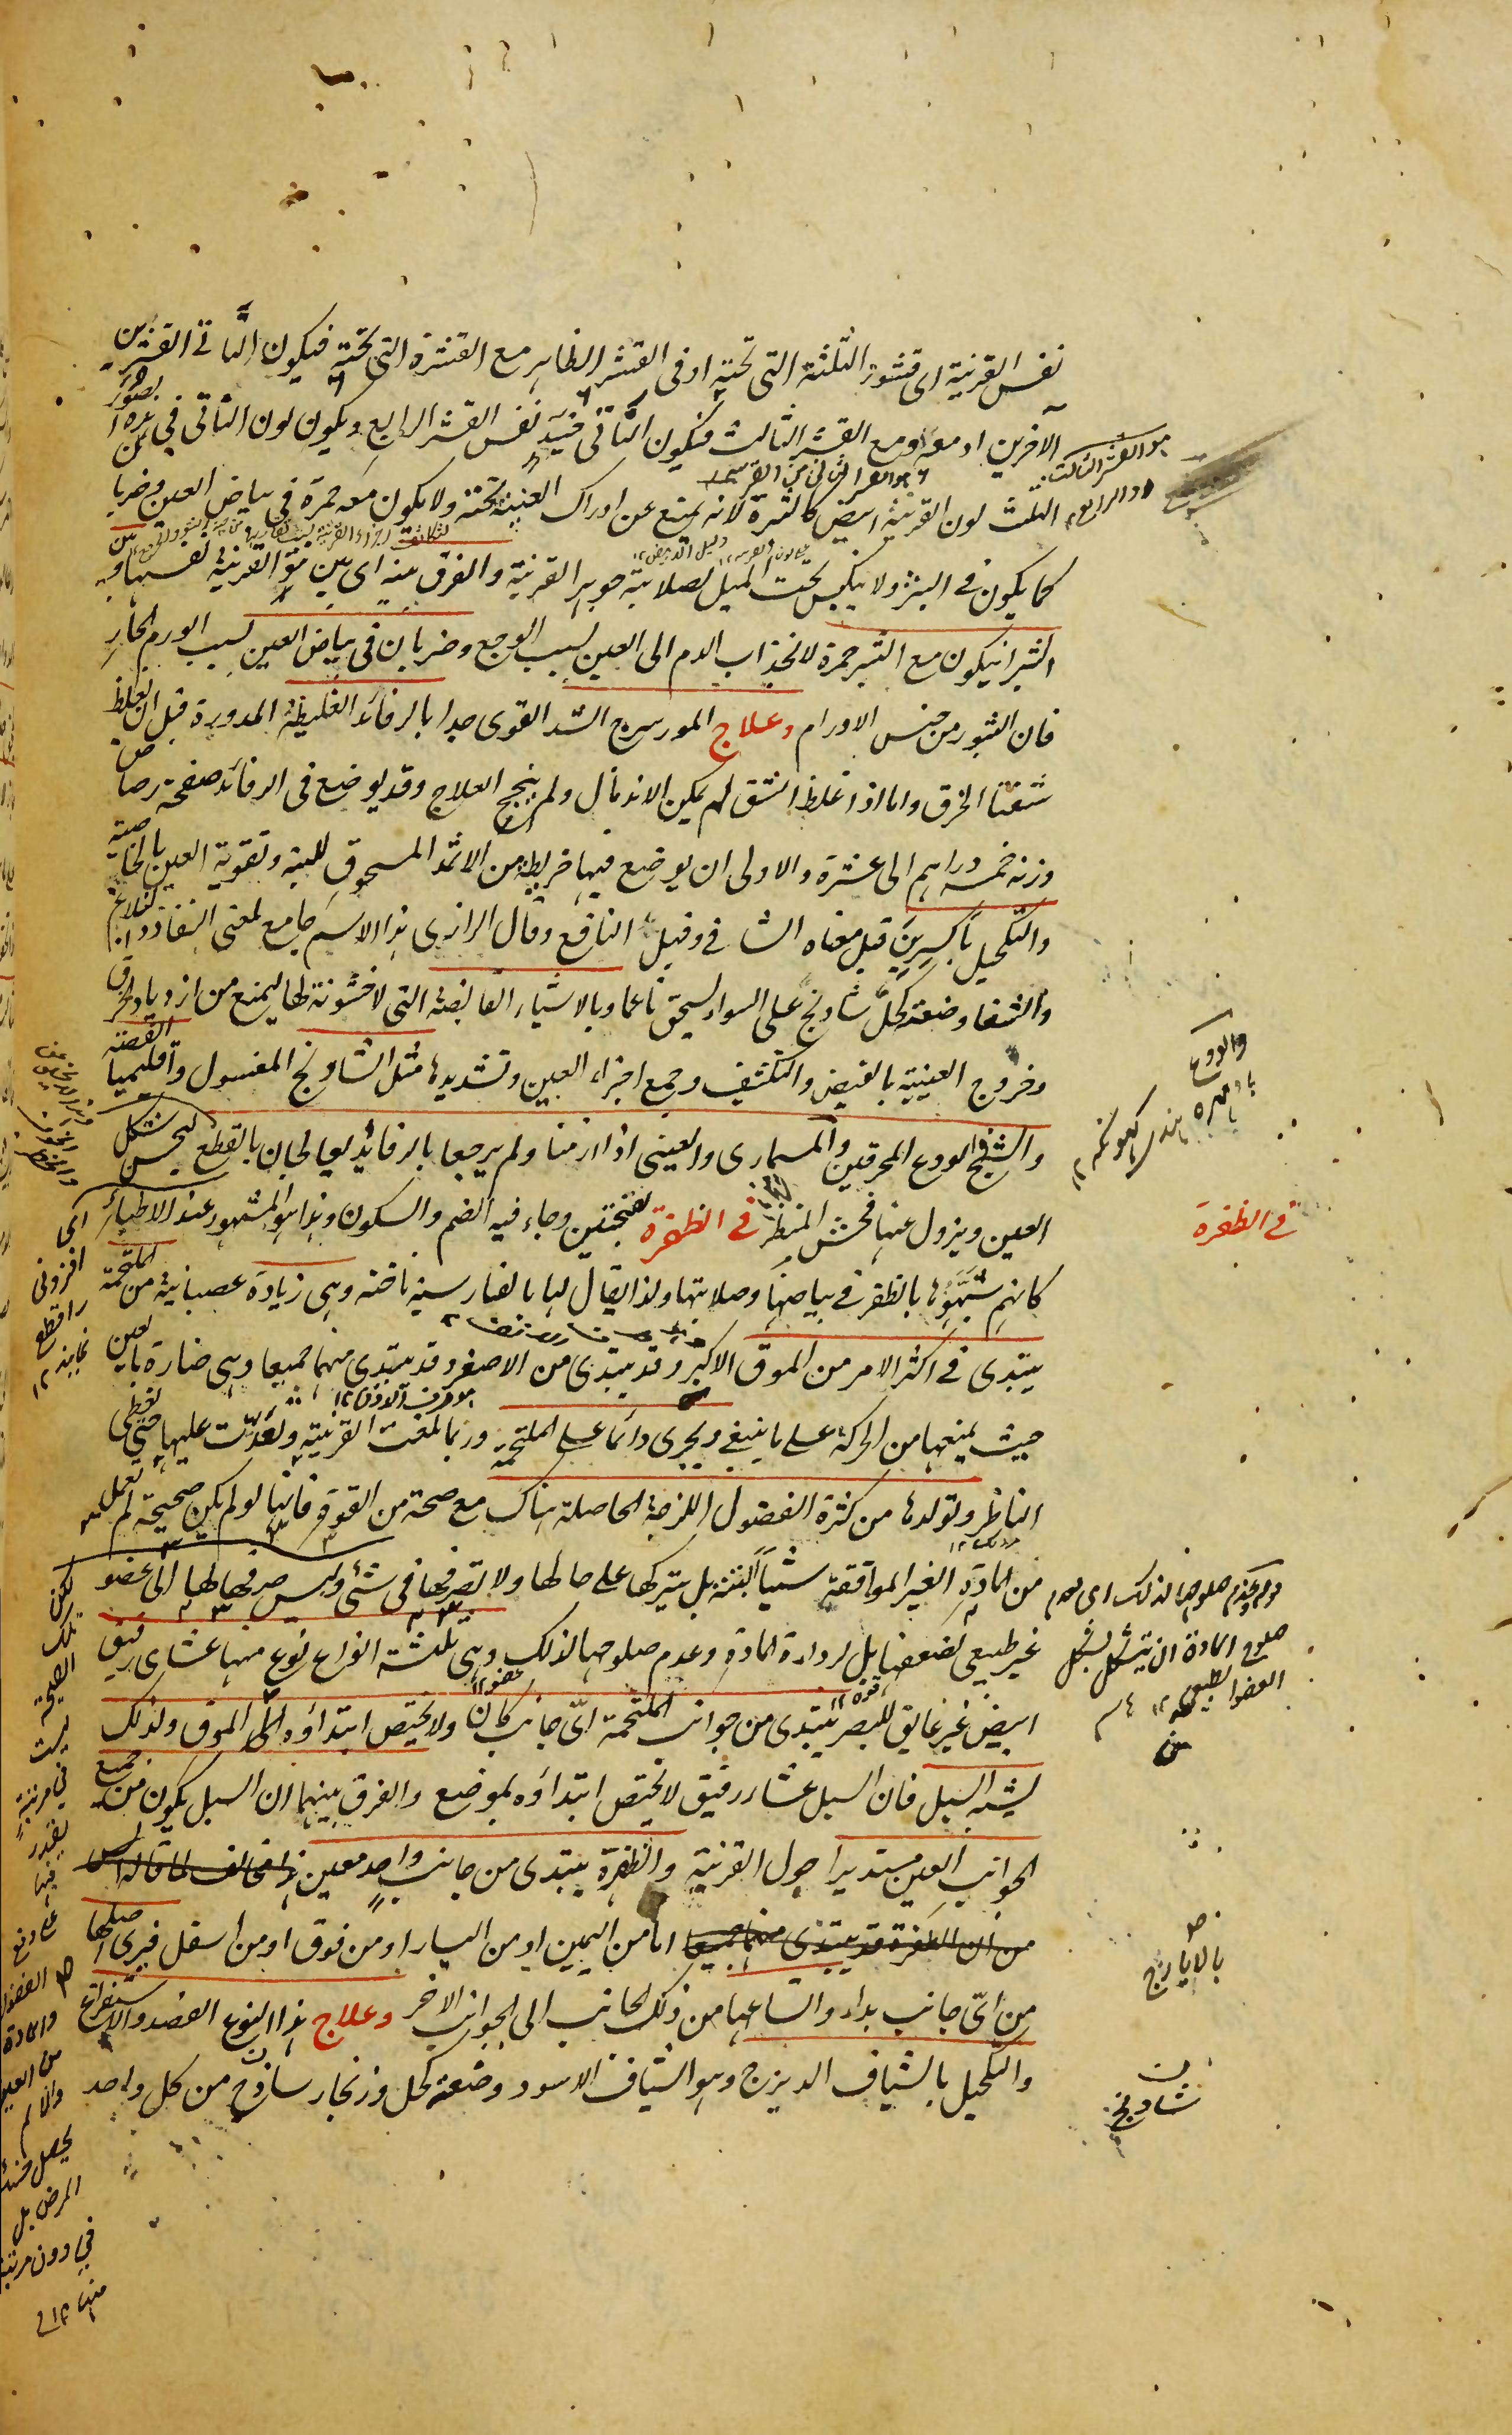 نفس القرنية اى قشور الثلثة التى تحته او فى القشر الظاهر مع القشرة التى تحته فيكون الناتى القشرين
الاخرين او معه و مع القشر الثالث فيكون الناتى فيه نفس القشر الرابع ويكون لون الناتى فى هذه الصور
الثلث لون القرنية ابيض كالبثرة لانه يمنع عن ادراك العنبية تحته ولا يكون معه حمرة فى بياض العين وضربان
كما يكون فى البثر ولا ينكبس تحت الميل لصلابة جوهر القرنية والفرق بينه اى بين نتو القرنية نفسها وبين
البثر ان يكون مع البثر حمرة لانجذاب الدم الى العين بسبب الوجع وضربان فى بياض العين بسبب الورم الحار
فان البثور من جنس الاورام وعلاج المورسرج الشد القوى جدا بالرفائد الغليظة المدورة قبل ان يغلظ
شفتا الخرق واما اذا غلظ الشق لم يمكن الاندمال ولم ينجح العلاج وقد يوضع فى الرفائد صفحة رصاص
وزنه خمسة دراهم الى عشرة والاولى ان يوضع فيها خريطة من الاثمد المسحوق للينه وتقوية العين بالخاصية
والتكحيل باكسيرين قيل معناه الشافى وقيل النافع وقال الرازى هذا الاسم جامع لمعنى النفاذ والابلاغ
والشفا وصنعته كحل شادنج على السواء يسحق ناعما وبالاشياء القابضة التى لا خشونة لها ليمنع من ازدياد الخرق
وخروج العينية بالقبض والتكثيف وجمع اجزاء العين وتشديدها مثل الشادنج المغسول واقليميا الفضة
والشنج الودع المحرقين والمسمارى والعينى اذا ازمنا ولم يرجعا بالرفائد يعالجان بالقطع ليحسن شكل
العين ويزول عنها فحش المنظر فى الظفرة بفتحتين وجاء فيه الضم والسكون وهذا هو المشهور عند الاطباء
كانهم شبهوها بالظفر فى بياضها وصلابتها ولذا يقال لها بالفارسية ناخنه وهى زيادة عصبانية من الملتحمة
يبتدى فى اكثر الامر من الموق الاكبر وقد يبتدى من الاصغر وقد يبتدى منهما جميعا وهى ضارة بالعين
حيث يمنعها من الحركة على ما ينبغى ويجرى دائما على الملتحمة وربما بلغت القرنية وتعدت عليها حتى تغطى
الناظر وتولدها من كثرة الفضول اللزجة الحاصلة هناك مع صحة من القوة فانها لو لم يكن صحيحة لم تعمل
من المادة الغير الموافقة شيئا البتة بل يتركها على حالها ولا يتصرفها فى شئ وليس صرفها لها الى عضو
غير طبيعى لضعفها بل لرداءة المادة وعدم صلوحها لذلك وهى ثلثة انواع نوع منها غشاى رقيق
ابيض غير عايق للبصر يبتدى من جوانب الملتحمة اى جانب كان ولا يختص ابتداؤه الى الموق ولذلك
يشبه السبل فان السبل غشاء رقيق لا يختص ابتداؤه بموضع والفرق بينهما ان السبل يكون من جميع
الجوانب العين مستديرا حول القرنية والظفرة يبتدى من جانب واحد معين هذا مخالف لما قاله
من ان الظفرة قد يبتدى منهما جميعا اما من اليمين او من اليسار او من فوق او من اسفل فيرى اصلها
من اى جانب بداء واتساعها من ذلك الجانب الى الجوانب الاخر وعلاج هذا النوع الفصد والاستفراغ
والتكحيل بالشياف الديزج وهو الشياف الاسود وصنعته كحل وزنجار ساذج من كل واحد
هو القشر الثالث
والرابع
والودع
فى الظفرة
قوله وعدم صلوحها لذلك اى عدم
صلوح المادة ان يتشكل بشكل
العضو الطبيعى ١٢
بالايارج
شادنج
اى
افزونى
را قطع
نمايند ١٢
لكن
تلك
الصحة
ليست
فى مرتبة
يقدر
فيها
على دفع
الفضول
والمادة
من العين
والا لم
يحصل منه
المرض بل
فى دون مرتبة